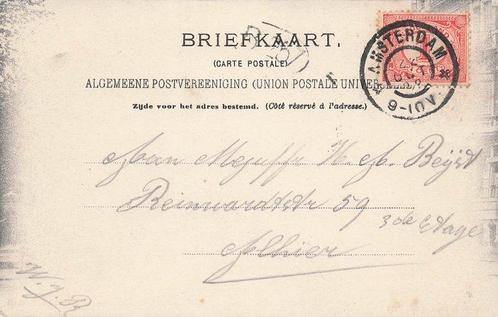 BRIEFKAART.
(CARTE POSTALE)
ALGEMEENE POSTVEREENIGING (UNION POSTALE UNIVERSELLE)
Zijde voor het adres bestemd. (Côté réservé à l'adresse.)
AMSTERDAM
9-10V
Aan Mejuffr H. A. Beijst
Reinwardtstr 59
3de Etage
Alhier
W. J. B